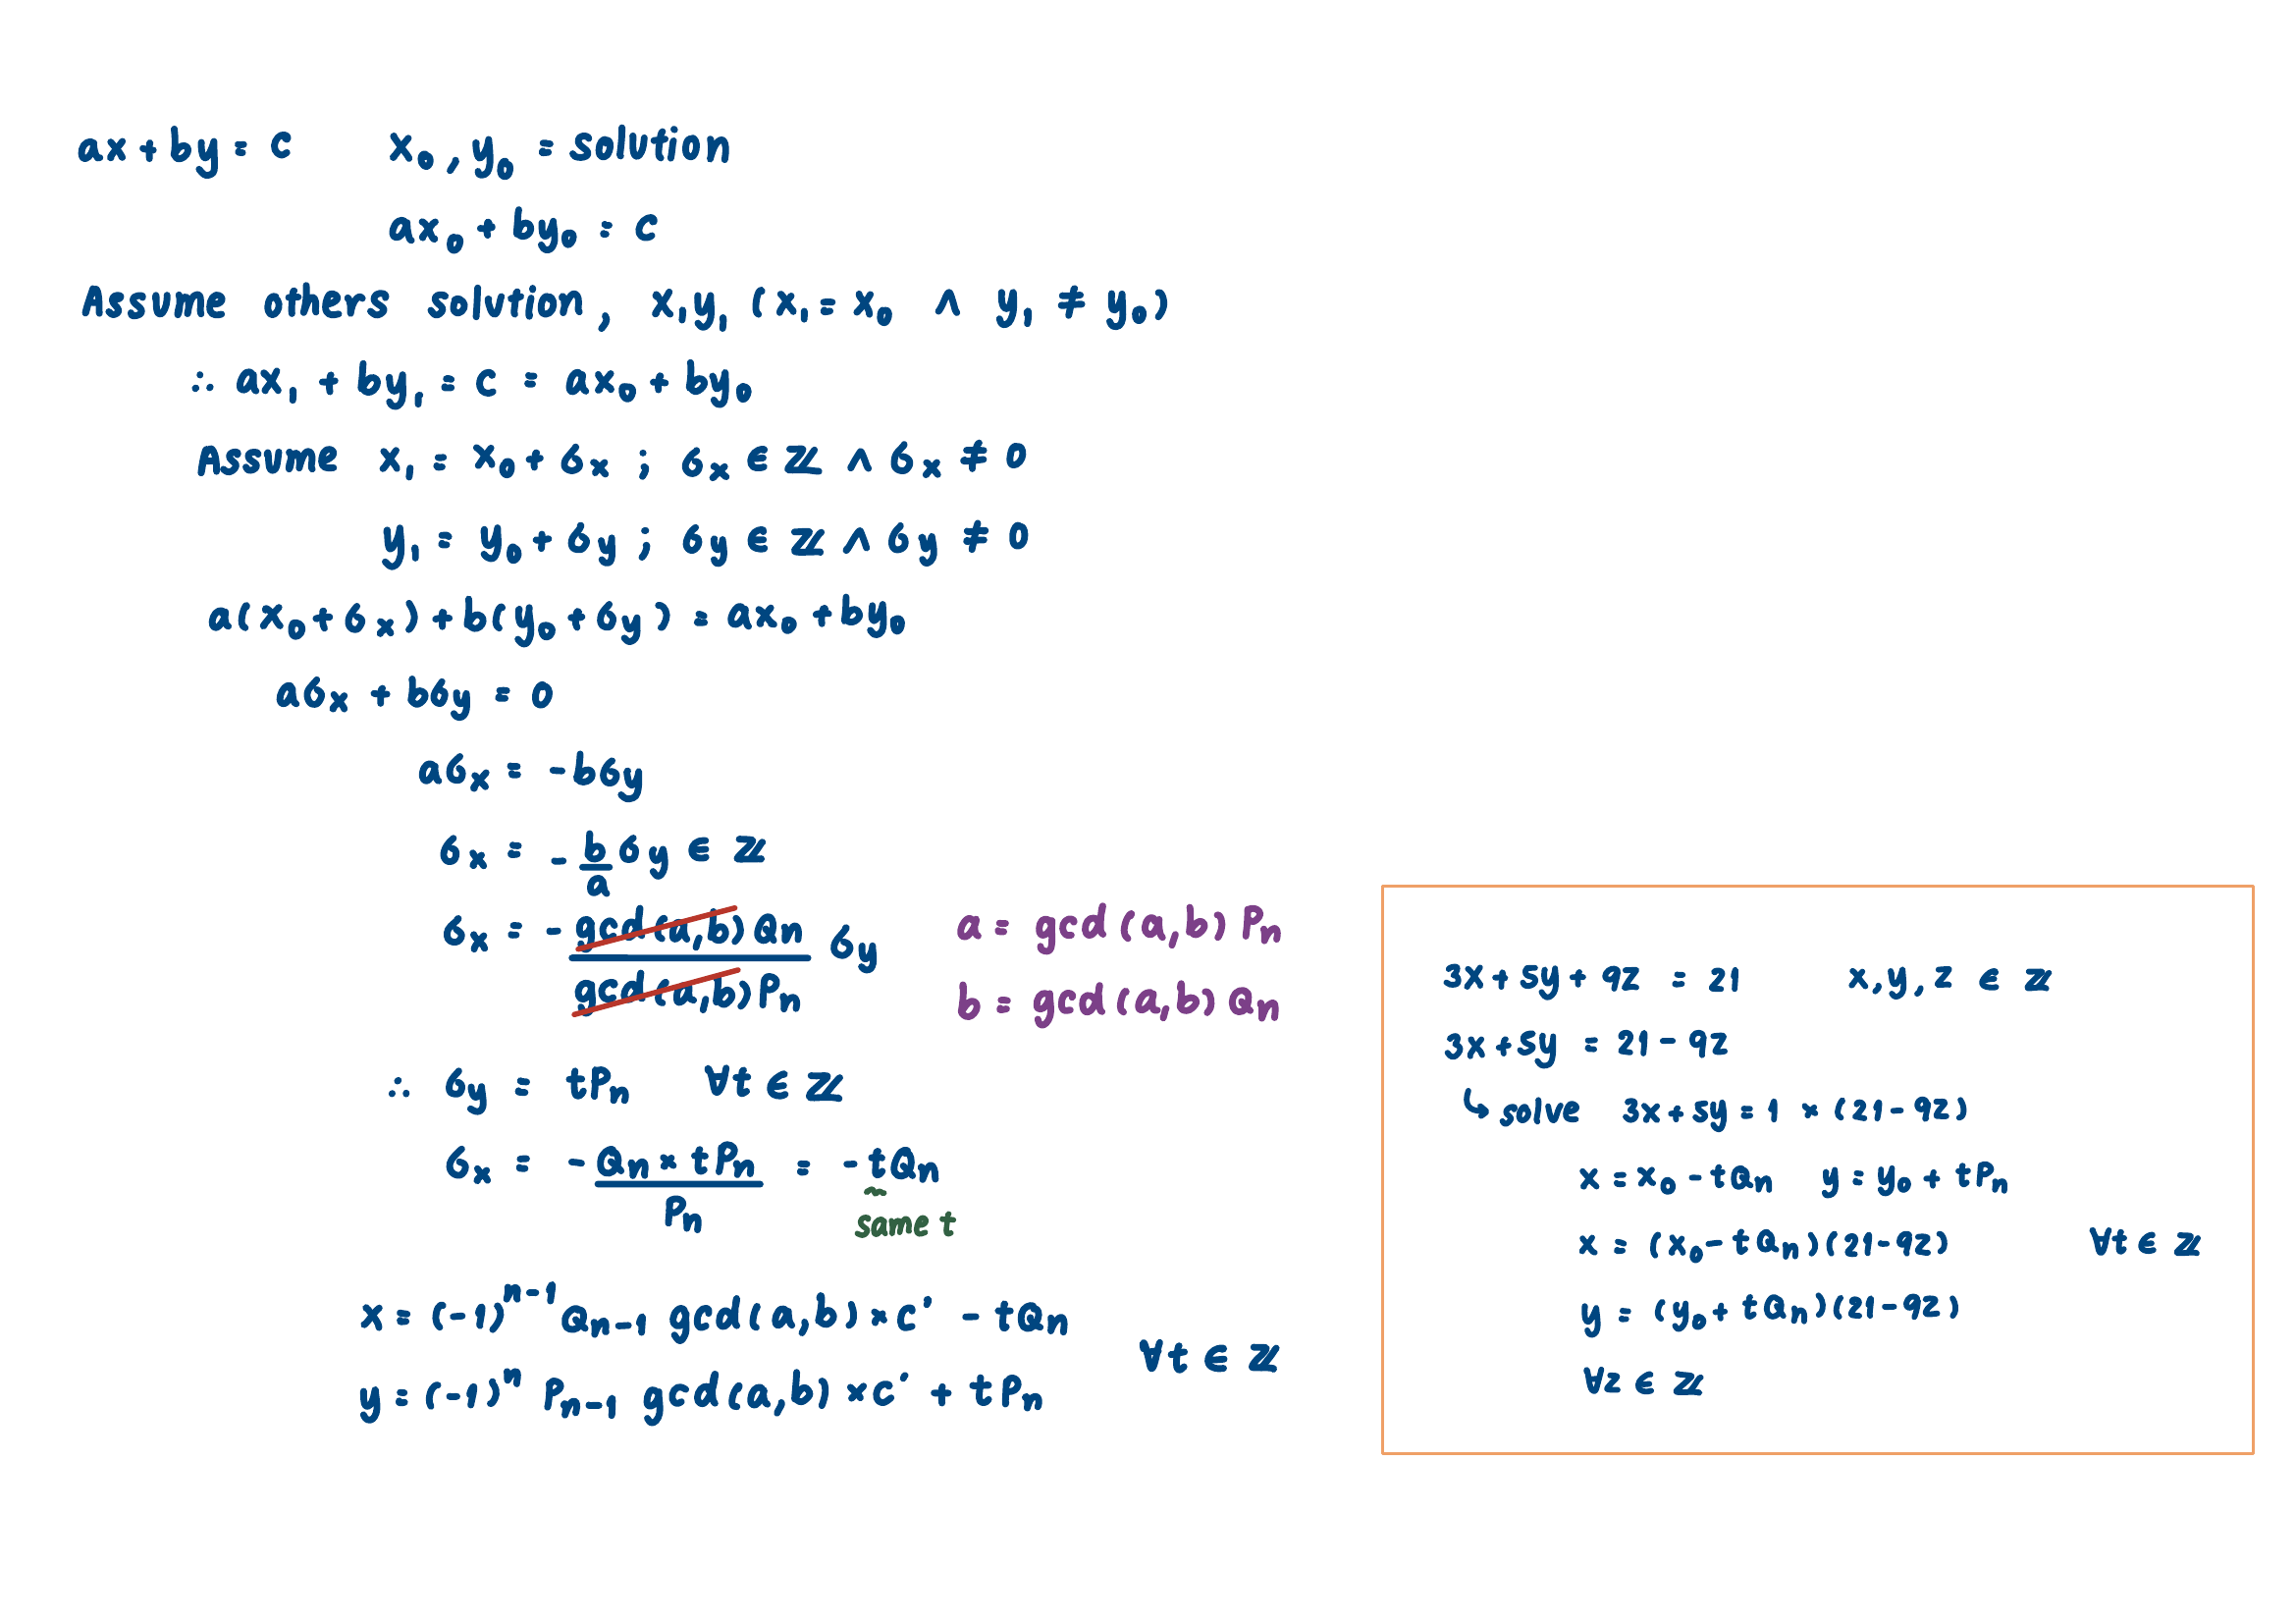 ax + by = c x₀, y₀ = solution
ax₀ + by₀ = c
Assume others solution, x₁y₁ (x₁ = x₀ ∧ y₁ ≠ y₀)
∴ ax₁ + by₁ = c = ax₀ + by₀
Assume x₁ = x₀ + 6ₓ ; 6ₓ ∈ ℤ ∧ 6ₓ ≠ 0
y₁ = y₀ + 6y ; 6y ∈ ℤ ∧ 6y ≠ 0
a(x₀ + 6ₓ) + b(y₀ + 6y) = ax₀ + by₀
a6ₓ + b6y = 0
a6ₓ = -b6y
6ₓ = -b/a 6y ∈ ℤ
6ₓ = - gcd(a,b)Qn / gcd(a,b)Pn 6y
a = gcd(a,b) Pn
b = gcd(a,b) Qn
∴ 6y = tPn ∀t ∈ ℤ
6ₓ = - Qn × tPn / Pn = -tQn
same t
x = (-1)ⁿ⁻¹ Qn-1 gcd(a,b) × c' - tQn
y = (-1)ⁿ Pn-1 gcd(a,b) × c' + tPn
∀t ∈ ℤ
3x + 5y + 9z = 21 x, y, z ∈ ℤ
3x + 5y = 21 - 9z
↳ solve 3x + 5y = 1 × (21 - 9z)
x = x₀ - tQn y = y₀ + tPn
x = (x₀ - tQn)(21 - 9z) ∀t ∈ ℤ
y = (y₀ + tQn)(21 - 9z)
∀z ∈ ℤ